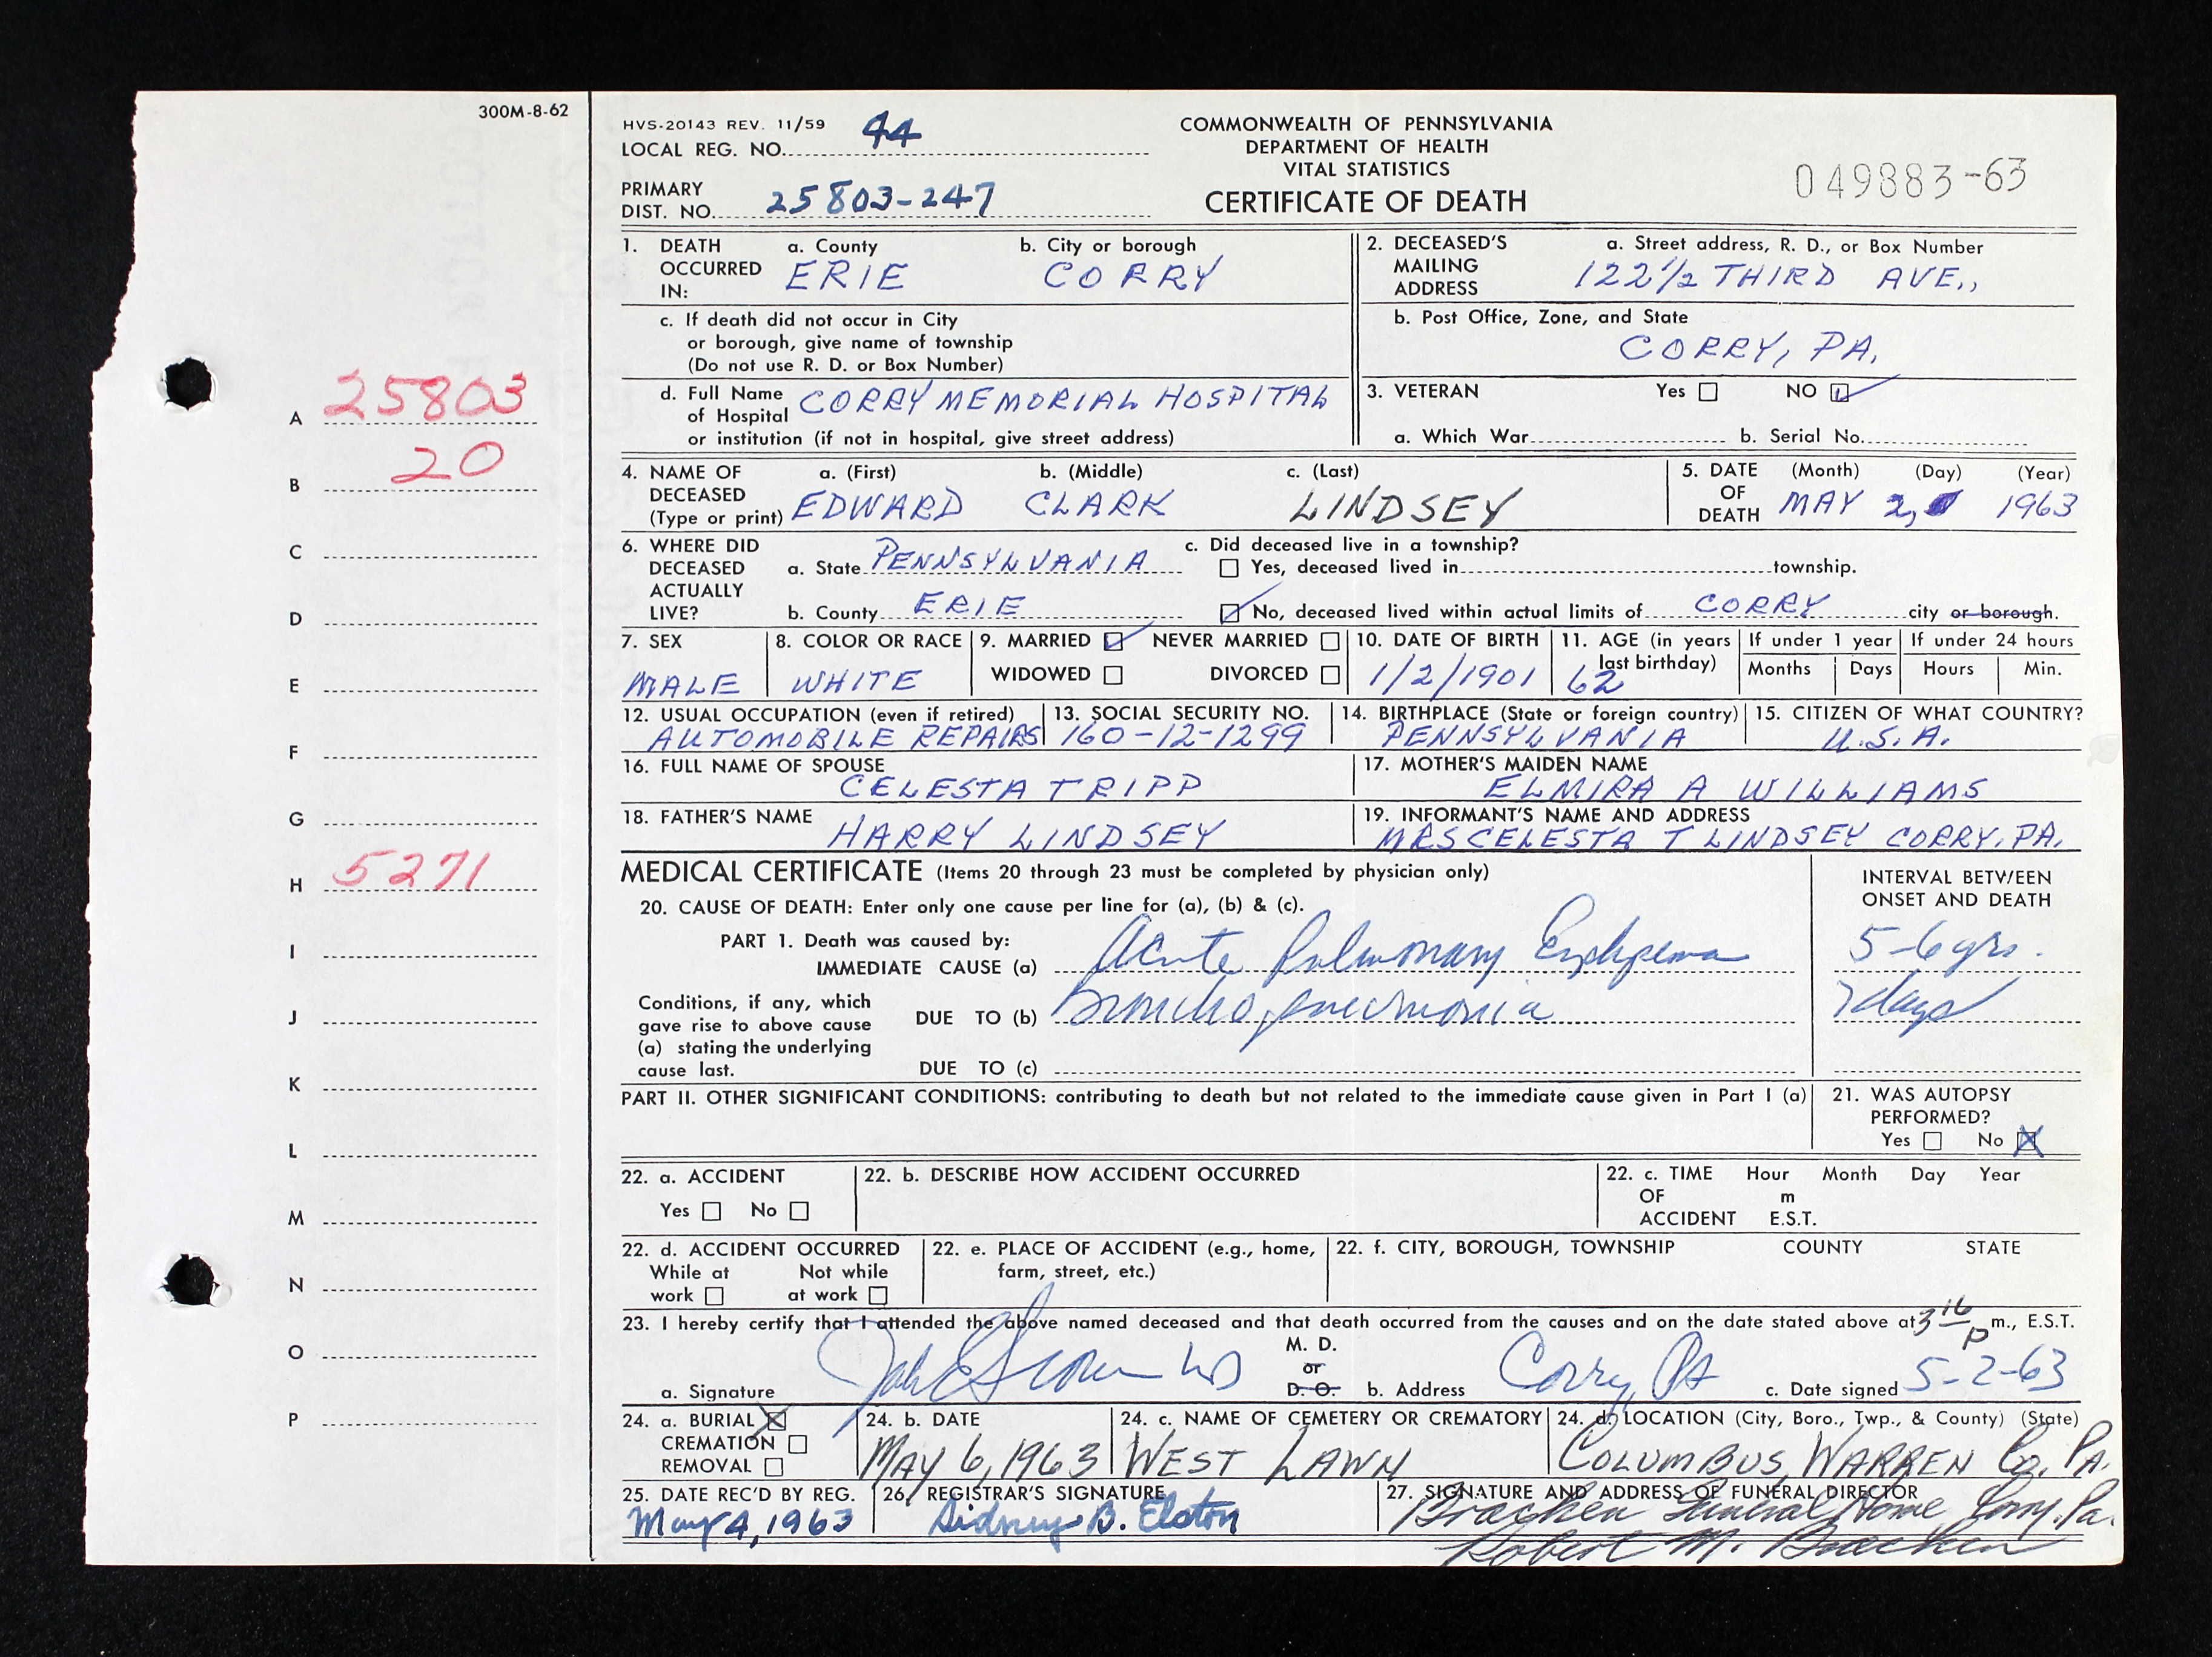 300M-8-62
HVS-20143 REV. 11/59
LOCAL REG. NO. 44
PRIMARY
DIST. NO. 25803-247
COMMONWEALTH OF PENNSYLVANIA
DEPARTMENT OF HEALTH
VITAL STATISTICS
CERTIFICATE OF DEATH
049883-63
1. DEATH OCCURRED IN: a. County ERIE b. City or borough CORRY
c. If death did not occur in City
or borough, give name of township
(Do not use R. D. or Box Number)
d. Full Name of Hospital CORRY MEMORIAL HOSPITAL
or institution (if not in hospital, give street address)
2. DECEASED'S MAILING ADDRESS a. Street address, R. D., or Box Number
122 1/2 THIRD AVE.,
b. Post Office, Zone, and State
CORRY, PA.
3. VETERAN Yes NO
a. Which War b. Serial No.
4. NAME OF DECEASED (Type or print) a. (First) EDWARD b. (Middle) CLARK c. (Last) LINDSEY
5. DATE OF DEATH (Month) (Day) (Year)
MAY 2, 1963
6. WHERE DID DECEASED ACTUALLY LIVE? a. State PENNSYLVANIA
b. County ERIE
c. Did deceased live in a township?
Yes, deceased lived in township.
No, deceased lived within actual limits of CORRY city or borough.
7. SEX MALE
8. COLOR OR RACE WHITE
9. MARRIED NEVER MARRIED
WIDOWED DIVORCED
10. DATE OF BIRTH 1/2/1901
11. AGE (in years last birthday) 62
If under 1 year If under 24 hours
Months Days Hours Min.
12. USUAL OCCUPATION (even if retired) AUTOMOBILE REPAIRS
13. SOCIAL SECURITY NO. 160-12-1299
14. BIRTHPLACE (State or foreign country) PENNSYLVANIA
15. CITIZEN OF WHAT COUNTRY? U.S.A.
16. FULL NAME OF SPOUSE CELESTA TRIPP
17. MOTHER'S MAIDEN NAME ELMIRA A WILLIAMS
18. FATHER'S NAME HARRY LINDSEY
19. INFORMANT'S NAME AND ADDRESS MRS CELESTA T LINDSEY CORRY, PA.
MEDICAL CERTIFICATE (Items 20 through 23 must be completed by physician only)
INTERVAL BETWEEN ONSET AND DEATH
20. CAUSE OF DEATH: Enter only one cause per line for (a), (b) & (c).
PART 1. Death was caused by:
IMMEDIATE CAUSE (a) Acute Pulmonary 5-6 yrs.
Conditions, if any, which
gave rise to above cause
(a) stating the underlying
cause last.
DUE TO (b) Bronchopneumonia 7 days
DUE TO (c)
PART II. OTHER SIGNIFICANT CONDITIONS: contributing to death but not related to the immediate cause given in Part I (a)
21. WAS AUTOPSY PERFORMED?
Yes No X
22. a. ACCIDENT
Yes No
22. b. DESCRIBE HOW ACCIDENT OCCURRED
22. c. TIME OF ACCIDENT Hour Month Day Year
m
E.S.T.
22. d. ACCIDENT OCCURRED
While at work Not while at work
22. e. PLACE OF ACCIDENT (e.g., home, farm, street, etc.)
22. f. CITY, BOROUGH, TOWNSHIP COUNTY STATE
23. I hereby certify that I attended the above named deceased and that death occurred from the causes and on the date stated above at 3 16 p m., E.S.T.
a. Signature M. D. or D. O.
b. Address Corry, Pa
c. Date signed 5-2-63
24. a. BURIAL X
CREMATION
REMOVAL
24. b. DATE MAY 6, 1963
24. c. NAME OF CEMETERY OR CREMATORY WEST LAWN
24. d. LOCATION (City, Boro., Twp., & County) (State)
COLUMBUS, WARREN Co. PA.
25. DATE REC'D BY REG. May 4, 1963
26. REGISTRAR'S SIGNATURE Sidney B. Elston
27. SIGNATURE AND ADDRESS OF FUNERAL DIRECTOR
Bracken Funeral Home, Corry, Pa.
Robert M. Bracken
A 25803
B 20
C
D
E
F
G
H 5271
I
J
K
L
M
N
O
P